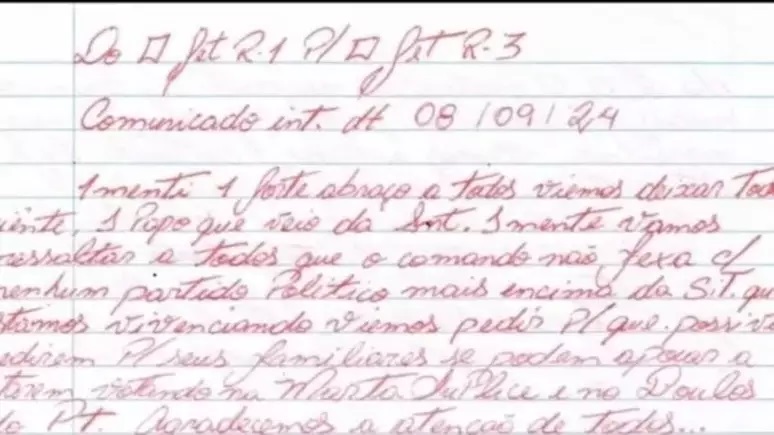 Do □ Jet R-1 P/ □ Jet R-3
Comunicado int. dt 08/09/24
1menti 1 forte abraço a todos viemos deixar Tod
iente, 1 Papo que veio da Snt. 1mente vamos
ressaltar a todos que o comando não fexa c/
nenhum partido Politico mais encima da S.T. que
stamos vivenciando viemos pedir P/ que possive
edirem P/ seus familiares se podem apoiar a
tarem votando na Marta Suplice e no Boulos
do Pt. Agradecemos a atenção de todos...